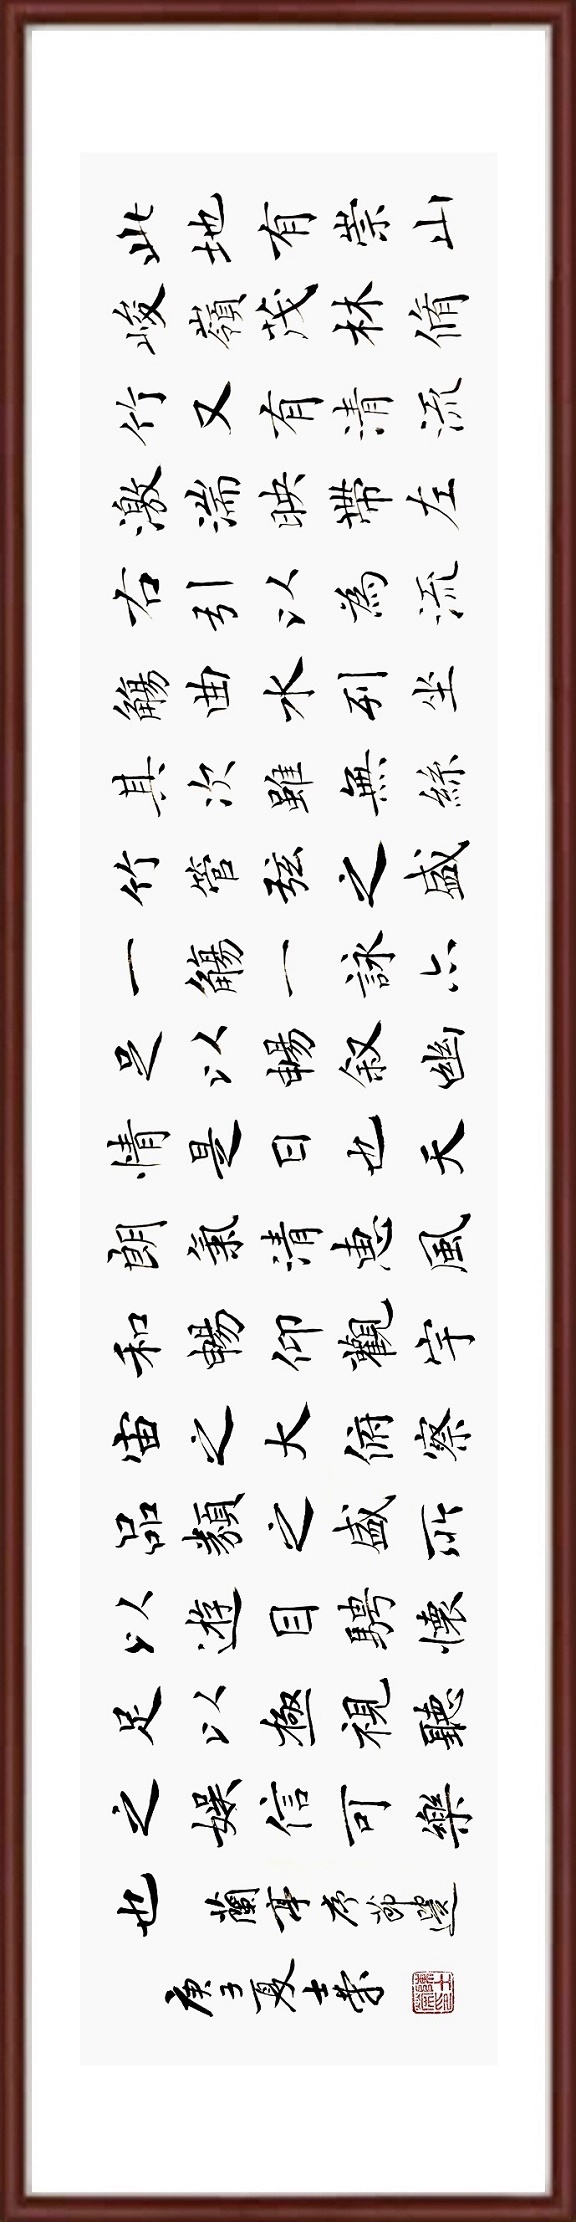 此地有崇山
峻嶺茂林脩
竹又有清流
激湍映帶左
右引以為流
觴曲水列坐
其次雖無絲
竹管弦之盛
一觴一詠亦
足以暢叙幽
情是日也天
朗氣清惠風
和暢仰觀宇
宙之大俯察
品類之盛所
以遊目騁懷
足以極視聽
之娛信可樂
也 蘭亭序節選
庚子夏士